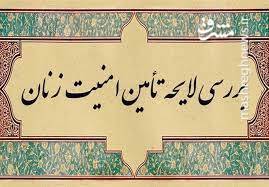 مشرق
mashreghnews.ir
بررسی لایحه تأمین امنیت زنان